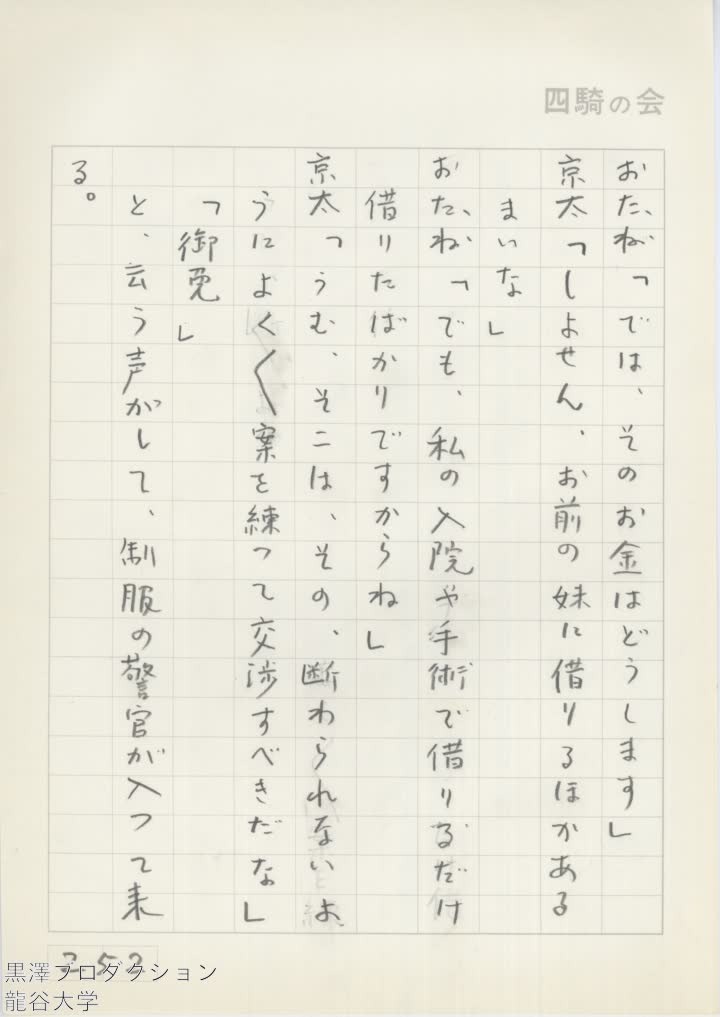 四騎の会
おたね「では、そのお金はどうします」
京太「しよせん、お前の妹に借りるほかある
まいな」
おたね「でも、私の入院や手術で借りるだけ
借りたばかりですからね」
京太「うむ、そこは、その、断わられないよ
うによく〱案を練って交渉すべきだな」
「御免」
と、云う声がして、制服の警官が入って来
る。
252
黒澤プロダクション
龍谷大学